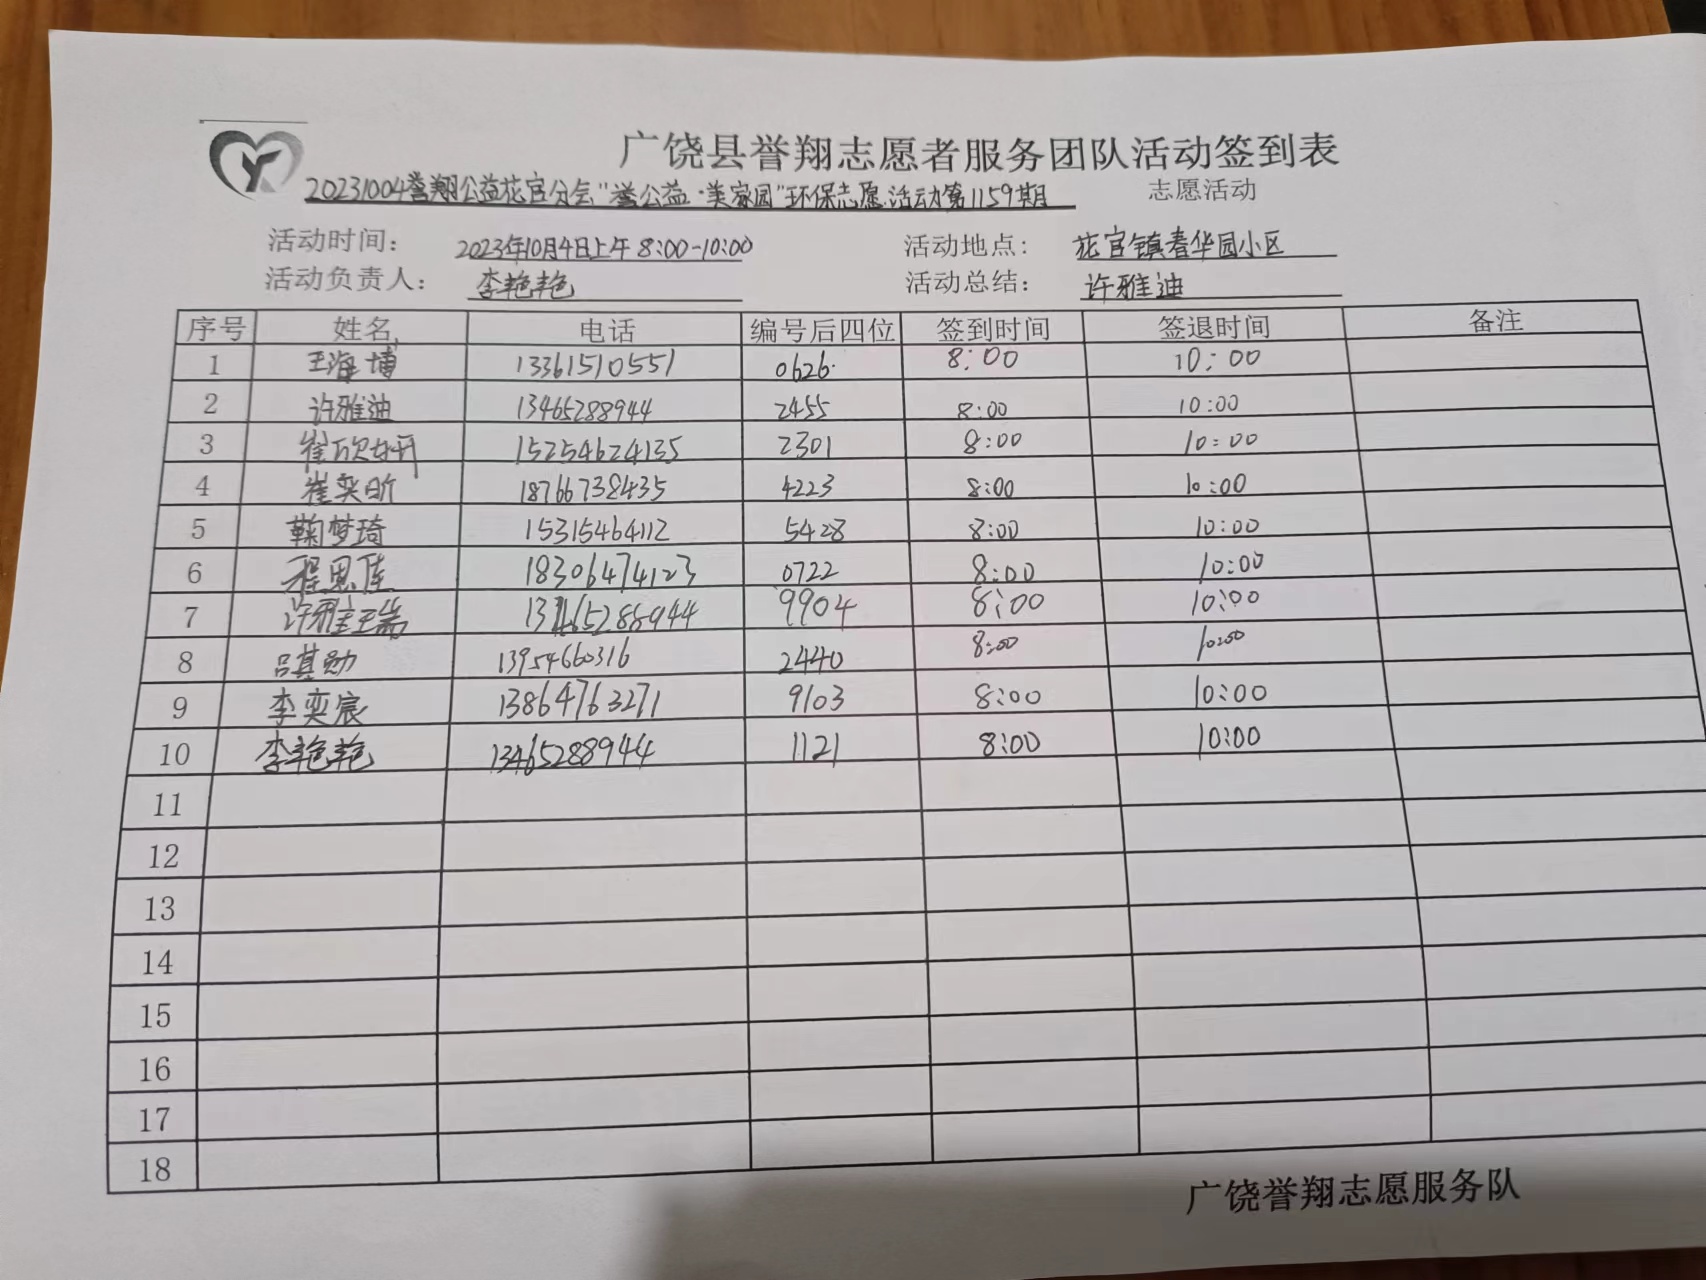 广饶县誉翔志愿者服务团队活动签到表
20231004誉翔公益花官分会“誉公益·美家园”环保志愿活动第1159期 志愿活动
活动时间： 2023年10月4日上午8:00-10:00 活动地点： 花官镇春华园小区
活动负责人： 李艳艳 活动总结： 许雅迪
序号 姓名 电话 编号后四位 签到时间 签退时间 备注
1 王海博 13361510551 0626 8:00 10:00
2 许雅迪 13465288944 2455 8:00 10:00
3 崔欣妍 15254624135 2301 8:00 10:00
4 崔奕昕 18766738435 4223 8:00 10:00
5 鞠梦琦 15315464112 5428 8:00 10:00
6 程思佳 18306474123 0722 8:00 10:00
7 许雅 13465288944 9904 8:00 10:00
8 吕其勋 13954660316 2440 8:00 10:00
9 李奕宸 13864763271 9103 8:00 10:00
10 李艳艳 13465288944 1121 8:00 10:00
11
12
13
14
15
16
17
18
广饶誉翔志愿服务队